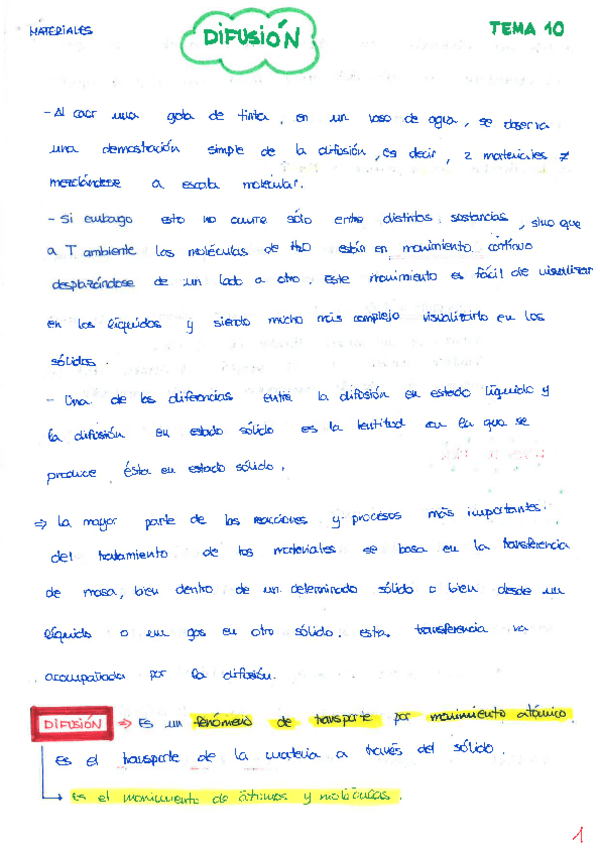 MATERIALES
DIFUSIÓN
TEMA 10
- Al caer una gota de tinta, en un vaso de agua, se observa
una demostración simple de la difusión, es decir, 2 materiales ≠
mezclándose a escala molecular.
- Si embargo esto no ocurre sólo entre distintas sustancias, sino que
a T ambiente las moléculas de H2O están en movimiento continuo
desplazándose de un lado a otro. Este movimiento es fácil de visualizar
en los líquidos y siendo mucho más complejo visualizarlo en los
sólidos.
- Una de las diferencias entre la difusión en estado líquido y
la difusión en estado sólido es la lentitud con la que se
produce ésta en estado sólido.
⇒ La mayor parte de las reacciones y procesos más importantes.
del tratamiento de los materiales se basa en la transferencia
de masa, bien dentro de un determinado sólido o bien desde un
líquido o un gas en otro sólido. esta transferencia va
acompañada por la difusión.
DIFUSIÓN ⇒ Es un fenómeno de transporte por movimiento atómico
es el transporte de la materia a través del sólido.
es el movimiento de átomos y moléculas.
1